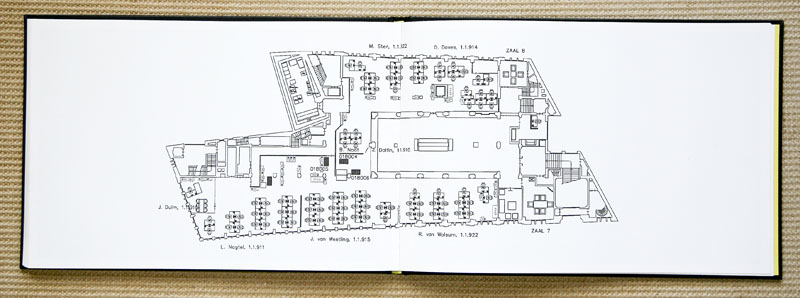 M. Ster, 1.1.122
D. Dawes, 1.1.914
ZAAL 8
B. Nooit
J. Dolfin, 1.1.910
018004
018005
018006
J. Duim, 1.1.
L. Nagtel, 1.1.911
J. van Weetling, 1.1.915
R. van Walsum, 1.1.922
ZAAL 7